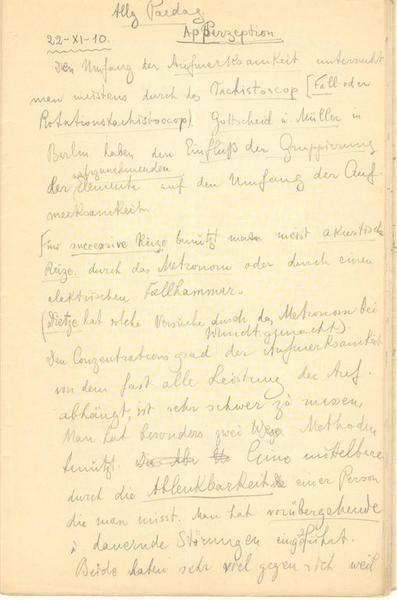 Allg Paedag.
22-XI-10. Apperzeption
Den Umfang der Aufmerksamkeit untersucht
man meistens durch das Tachistoscop (Fall oder
Rotationstachistoscop) Gottscheid u Müller in
Berlin haben den Einfluß der Gruppierung
der aufzunehmenden Elemente auf den Umfang der Auf-
merksamkeit
Für successive Reize benützt man meist akustische
Reize durch das Metronom oder durch einen
elektrischen Fallhammer.
(Dietze hat solche Versuche durch das Metronom bei
Wundt gemacht)
Den Conzentrationsgrad der Aufmerksamkeit
von dem fast alle Leistung der Auf.
abhängt, ist sehr schwer zu messen,
Man hat besonders zwei Methoden
benützt. Eine mittelbare
durch die Ablenkbarkeit einer Person
die man misst. Man hat vorübergehende
u dauernde Störungen eingeführt.
Beide haben sehr viel gegen sich weil